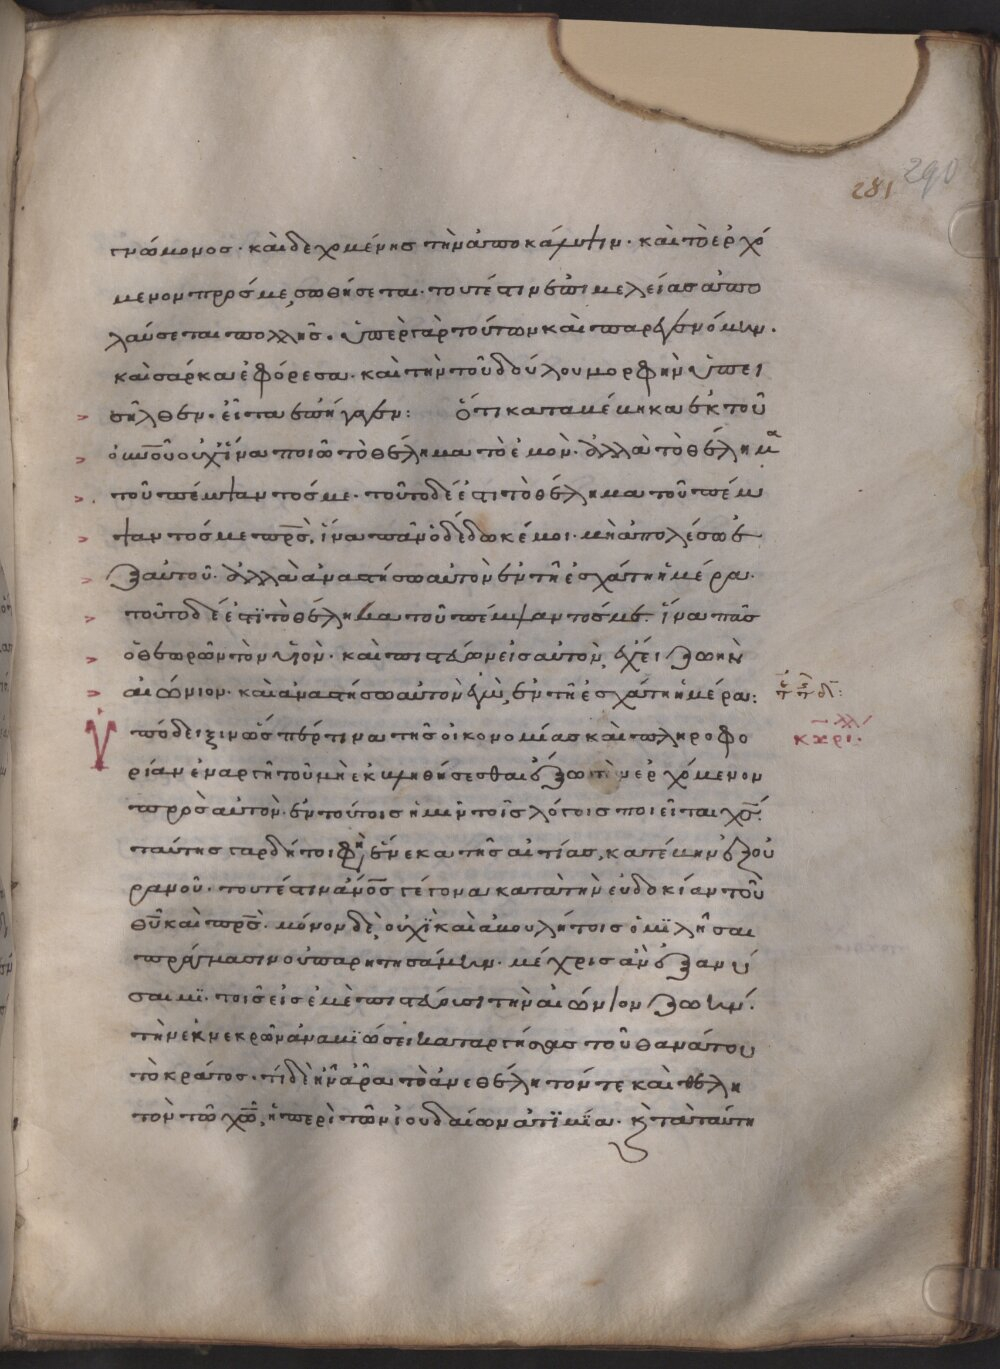 290
281
γνώμονος· καὶ δεχομένης τὴν ἀποκάμψιν· καὶ τὸ ἐρχό
μενον πρός με, σωθήσεται· τουτέστιν ἐπιμελείας ἀπο
λαύσεται πολλῆς· ὑπὲρ γὰρ τούτων καὶ παρεγενόμην·
καὶ σάρκα ἐφόρεσα· καὶ τὴν τοῦ δούλου μορφὴν ὑπει
σῆλθον· εἶτα ἐπήγαγεν: Ὅτι καταμέμηκα ἐκ τοῦ
οὐνοῦ οὐχ ἵνα ποιῶ τὸ θέλημα τὸ ἐμὸν· ἀλλὰ τὸ θέλημα
τοῦ πέμψαντός με· τοῦτο δέ ἐστι τὸ θέλημα τοῦ πέμ
ψαντός με πρς, ἵνα πᾶν ὃ δέδωκέ μοι· μὴ ἀπολέσω ἐ
ξ αὐτοῦ· ἀλλὰ ἀναστήσω αὐτὸν ἐν τῇ ἐσχάτῃ ἡμέρα·
τοῦτο δέ ἐστϊ τὸ θέλημα τοῦ πέμψαντός με· ἵνα πᾶς
ὁ θεωρῶν τὸν υἱὸν· καὶ πιστεύων εἰς αὐτὸν, ἔχει ζωὴν
αἰώνιον· καὶ ἀναστήσω αὐτὸν ἐγὼ, ἐν τῇ ἐσχάτῃ ἡμέρα:
κυρίλλ
Ὑ
πόδειξιν ὥσπερ τινα τῆς οἰκονομίας καὶ πληροφο
ρίαν ἐναργῆ τοῦ μὴ ἐκβληθήσεσθαι ἔξω τὸν ἐρχόμενον
πρὸς αὐτὸν· ἐν τούτοις ἡμῖν τοῖς λόγοις ποιεῖται χς·
ταύτης γὰρ δή τοι φη, ἕνεκα τῆς αἰτίας, κατέβην ἐξ οὐ
ρανοῦ· τουτέστιν ἄνος γέγονα κατὰ τὴν εὐδοκίαν τοῦ
θυ καὶ πρς· μόνον δὲ, οὐχὶ καὶ ἀβουλήτοις ὁμιλῆσαι
πράγμασιν οὐ παρῃτησάμην· μέχρις ἂν ἐξανύ
σαιμι· τοῖς εἰς ἐμὲ πιστεύουσι τὴν αἰώνιον ζωὴν·
τὴν ἐκ νεκρῶν ἀναβίωσιν καταργήσας τοῦ θανάτου
τὸ κράτος· τί δὲ ἦν ἄρα τὸ ἀνεθέλητόν τε καὶ θελη
τὸν τῷ χῷ, ἡ περὶ τῶν ἰουδαίων ἀτιμία· κ τὰ ταύτη